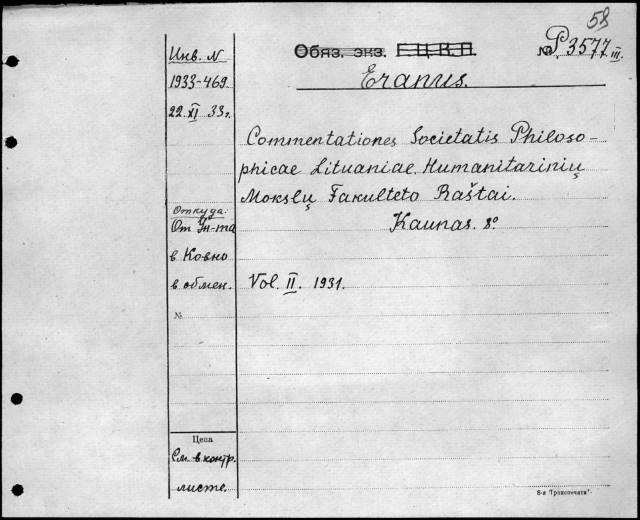 58
Обяз. экз. Г.Ц.К.П. № P.3577 III.
Eranus.
Инв. N
1933-469
22. XI 33 г.
Commentationes Societatis Philoso-
phicae Lituaniae. Humanitarinių
Mokslų Fakulteto Raštai.
Kaunas. 8°
Откуда:
От Ун-та
в Ковно
в обмен.
Vol. II. 1931.
№
Цена
См. в контр.
листе.
8-я "Транспечати".